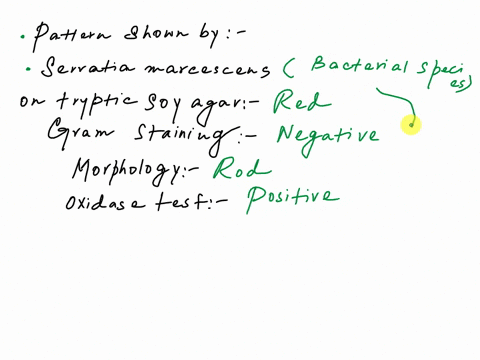 • Pattern shown by:-
• Serratia marcescens ( Bacterial species)
on tryptic soy agar:- Red
Gram Staining:- Negative
Morphology:- Rod
Oxidase test:- Positive